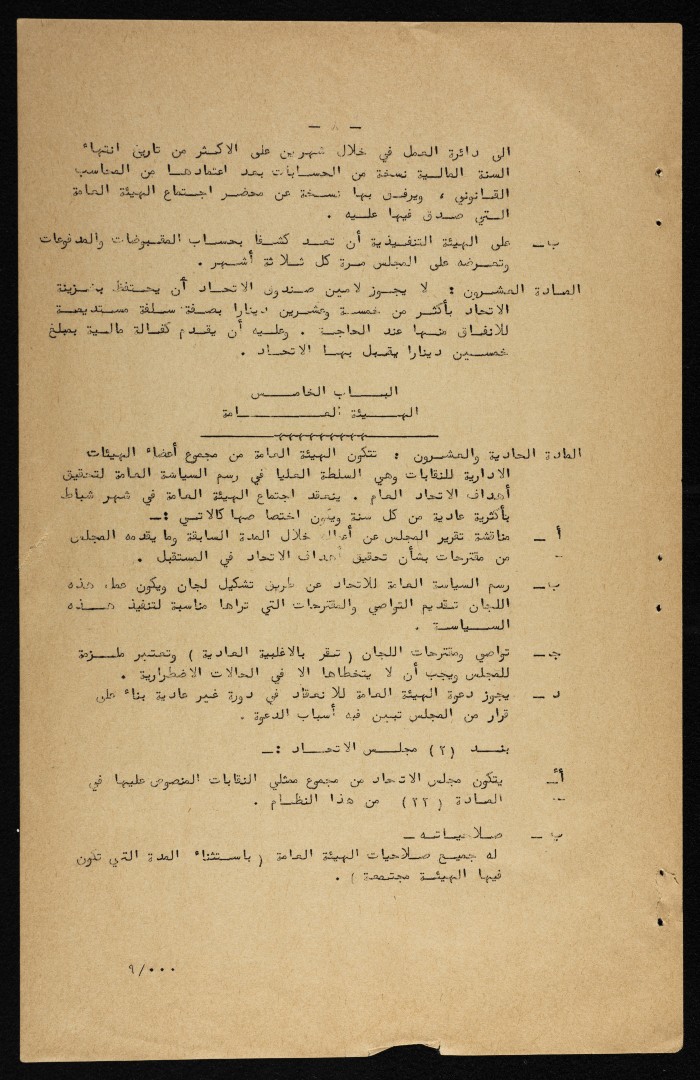 - ٨ -
الى دائرة العمل في خلال شهرين على الاكثر من تاريخ انتهاء
السنة المالية نسخة من الحسابات بعد اعتمادها من المحاسب
القانوني ، ويرفق بها نسخة عن محضر اجتماع الهيئة العامة
التي صدق فيها عليه .
ب- على الهيئة التنفيذية أن تعد كشفا بحساب المقبوضات والمدفوعات
وتعرضه على المجلس مرة كل ثلاثة أشهر .
المادة العشرون : لا يجوز لامين صندوق الاتحاد أن يحتفظ بخزينة
الاتحاد بأكثر من خمسة وعشرين دينارا بصفة سلفة مستديمة
للانفاق منها عند الحاجة . وعليه أن يقدم كفالة مالية بمبلغ
خمسين دينارا يقبل بها الاتحاد .
الباب الخامس
الهيئة العامة
المادة الحادية والعشرون : تتكون الهيئة العامة من مجموع أعضاء الهيئات
الادارية للنقابات وهي السلطة العليا في رسم السياسة العامة لتحقيق
أهداف الاتحاد العام . ينعقد اجتماع الهيئة العامة في شهر شباط
بأكثرية عادية من كل سنة ويكون اختصاصها كالاتي :-
أ - مناقشة تقرير المجلس عن أعماله خلال المدة السابقة وما يقدمه المجلس
من مقترحات بشأن تحقيق أهداف الاتحاد في المستقبل .
ب- رسم السياسة العامة للاتحاد عن طريق تشكيل لجان ويكون عمل هذه
اللجان تقديم التواصي والمقترحات التي تراها مناسبة لتنفيذ هذه
السياسة .
ج- تواصي ومقترحات اللجان ( تقر بالاغلبية العادية ) وتعتبر ملزمة
للمجلس ويجب أن لا يتخطاها الا في الحالات الاضطرارية .
د - يجوز دعوة الهيئة العامة للانعقاد في دورة غير عادية بناء على
قرار من المجلس تبين فيه أسباب الدعوة .
بند (٢) مجلس الاتحاد :-
أ- يتكون مجلس الاتحاد من مجموع ممثلي النقابات المنصوص عليها في
المادة (٢٢) من هذا النظام .
ب - صلاحياته -
له جميع صلاحيات الهيئة العامة ( باستثناء المدة التي تكون
فيها الهيئة مجتمعة ) .
٩/٠٠٠